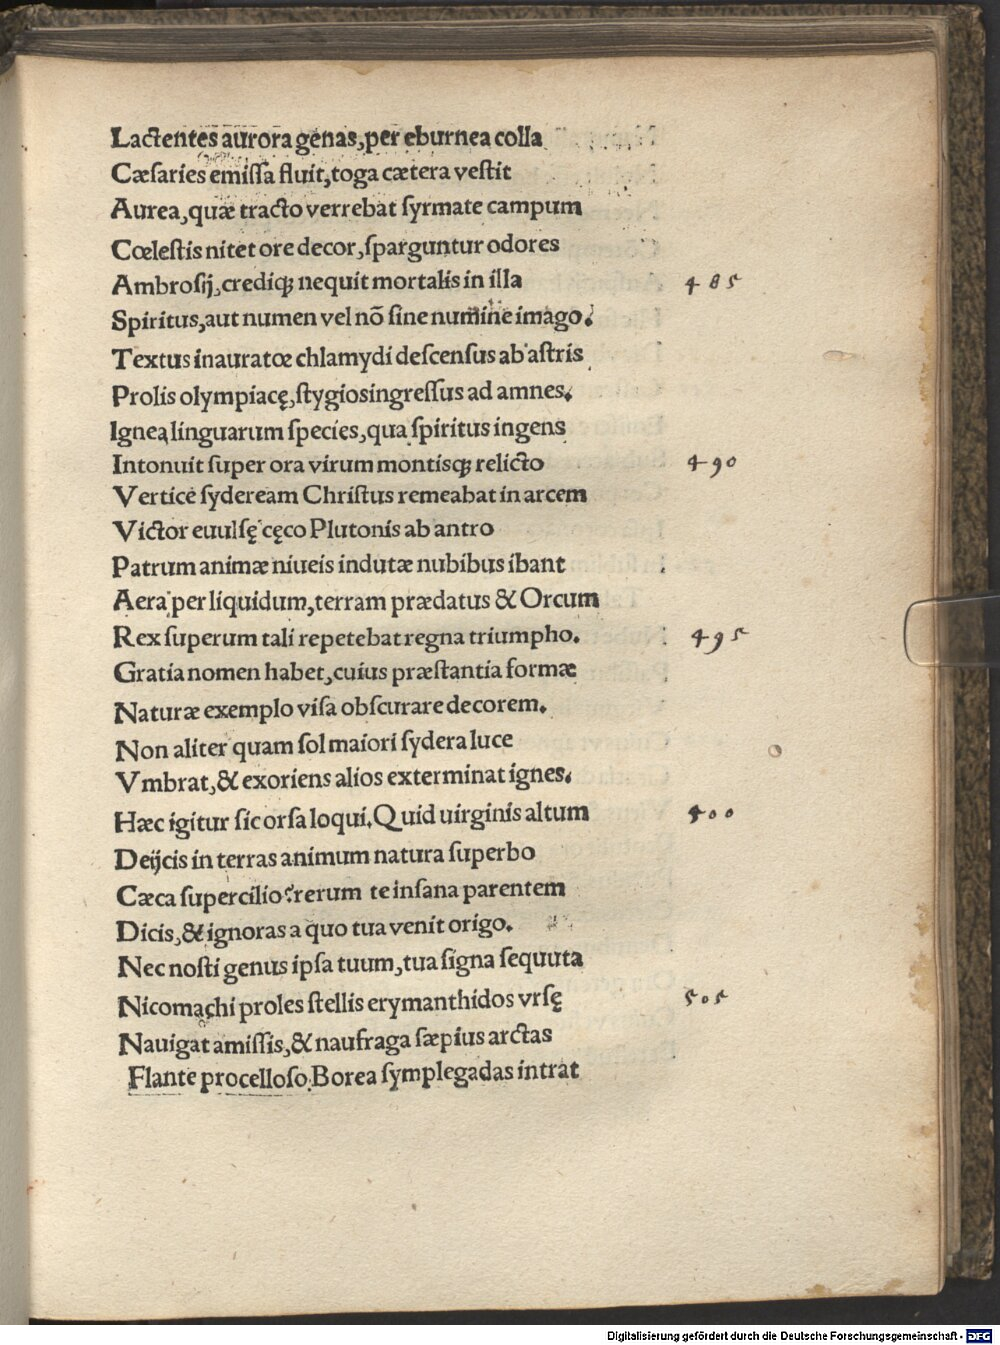 Lactentes aurora genas, per eburnea colla
Cæsaries emiſſa fluit, toga cætera veſtit
Aurea, quæ tracto verrebat ſyrmate campum
Cœleſtis nitet ore decor, ſparguntur odores
Ambroſij, crediqꝫ nequit mortalis in illa 485
Spiritus, aut numen vel nõ ſine numine imago.
Textus inauratœ chlamydi deſcenſus ab aſtris
Prolis olympiacę, ſtygios ingreſſus ad amnes.
Igneą linguarum ſpecies, qua ſpiritus ingens
Intonuit ſuper ora virum montisqꝫ relicto 490
Vertice ſydeream Chriſtus remeabat in arcem
Victor euulſę cęco Plutonis ab antro
Patrum animæ niueis indutæ nubibus ibant
Aera per liquidum, terram prædatus & Orcum
Rex ſuperum tali repetebat regna triumpho. 495
Gratia nomen habet, cuius præſtantia formæ
Naturæ exemplo viſa obſcurare decorem.
Non aliter quam ſol maiori ſydera luce
Vmbrat, & exoriens alios exterminat ignes.
Hæc igitur ſic orſa loqui. Quid uirginis altum 400
Deijcis in terras animum natura ſuperbo
Cæca ſupercilio? rerum te inſana parentem
Dicis, & ignoras a quo tua venit origo.
Nec noſti genus ipſa tuum, tua ſigna ſequuta
Nicomachi proles ſtellis erymanthidos vrſę 505
Nauigat amiſſis, & naufraga ſæpius arctas
Flante procelloſo Borea ſymplegadas intrat
Digitalisierung gefördert durch die Deutsche Forschungsgemeinschaft - DFG